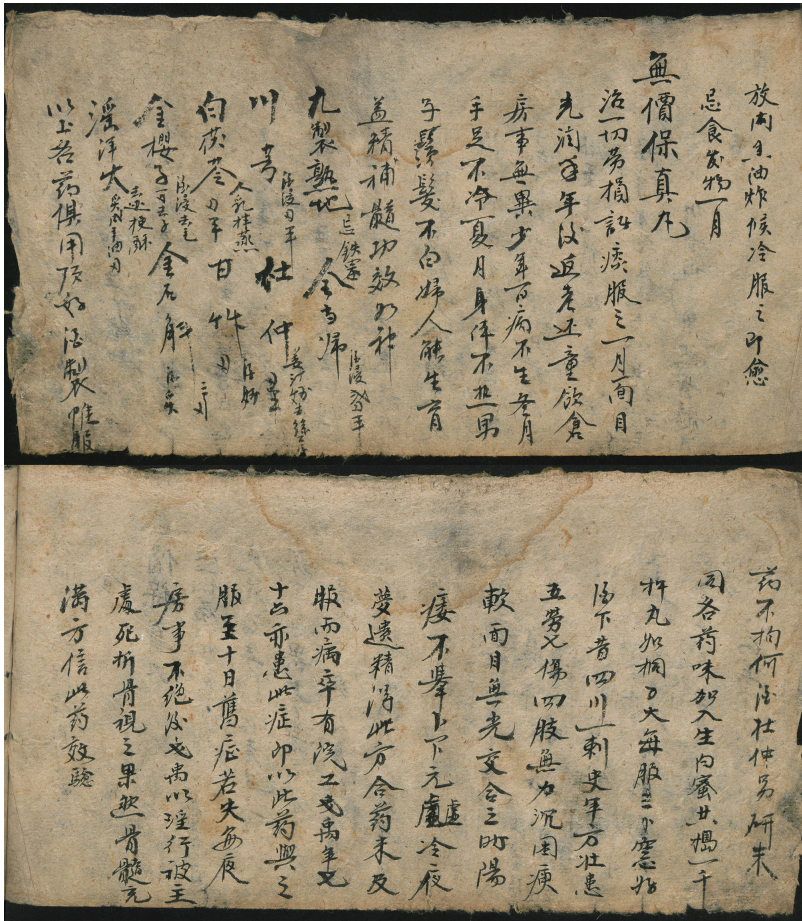 放肉系油炸候冷服之即愈
忌食发物一月
無價保真丸
治一切劳损諸痿服之一月面目
光潤半年後返老还童飲食
房事無異少年百病不生冬月
手足不冷夏月身体不热男
子鬚髮不白婦人能生育
益精補髓功效如神
九製熟地 忌鉄器 全当归 酒浸
川芎 酒浸 杜仲 姜汁炒去絲
白茯苓 人乳拌蒸 甘草
金櫻子 酒浸去毛 金石斛
淫洋火 去边梗酥
以上各药俱用顶好酒製惟服
药不拘何酒杜仲另研末
同各药味加入生白蜜廿八搗一千
杵丸如桐子大每服三钱空心好
酒下昔四川一刺史年方壮患
五劳七傷四肢無力沉困痰
軟面目無光交合之时陽
痿不舉下元虛冷夜
夢遺精得此方合药未及
服而病卒有洗工戈禹年七
十六亦患此症即以此药與之
服至十日舊症若失每夜
房事不绝後戈禹以瑶行被主
處死折骨視之果然骨髓充
满方信此药效驗